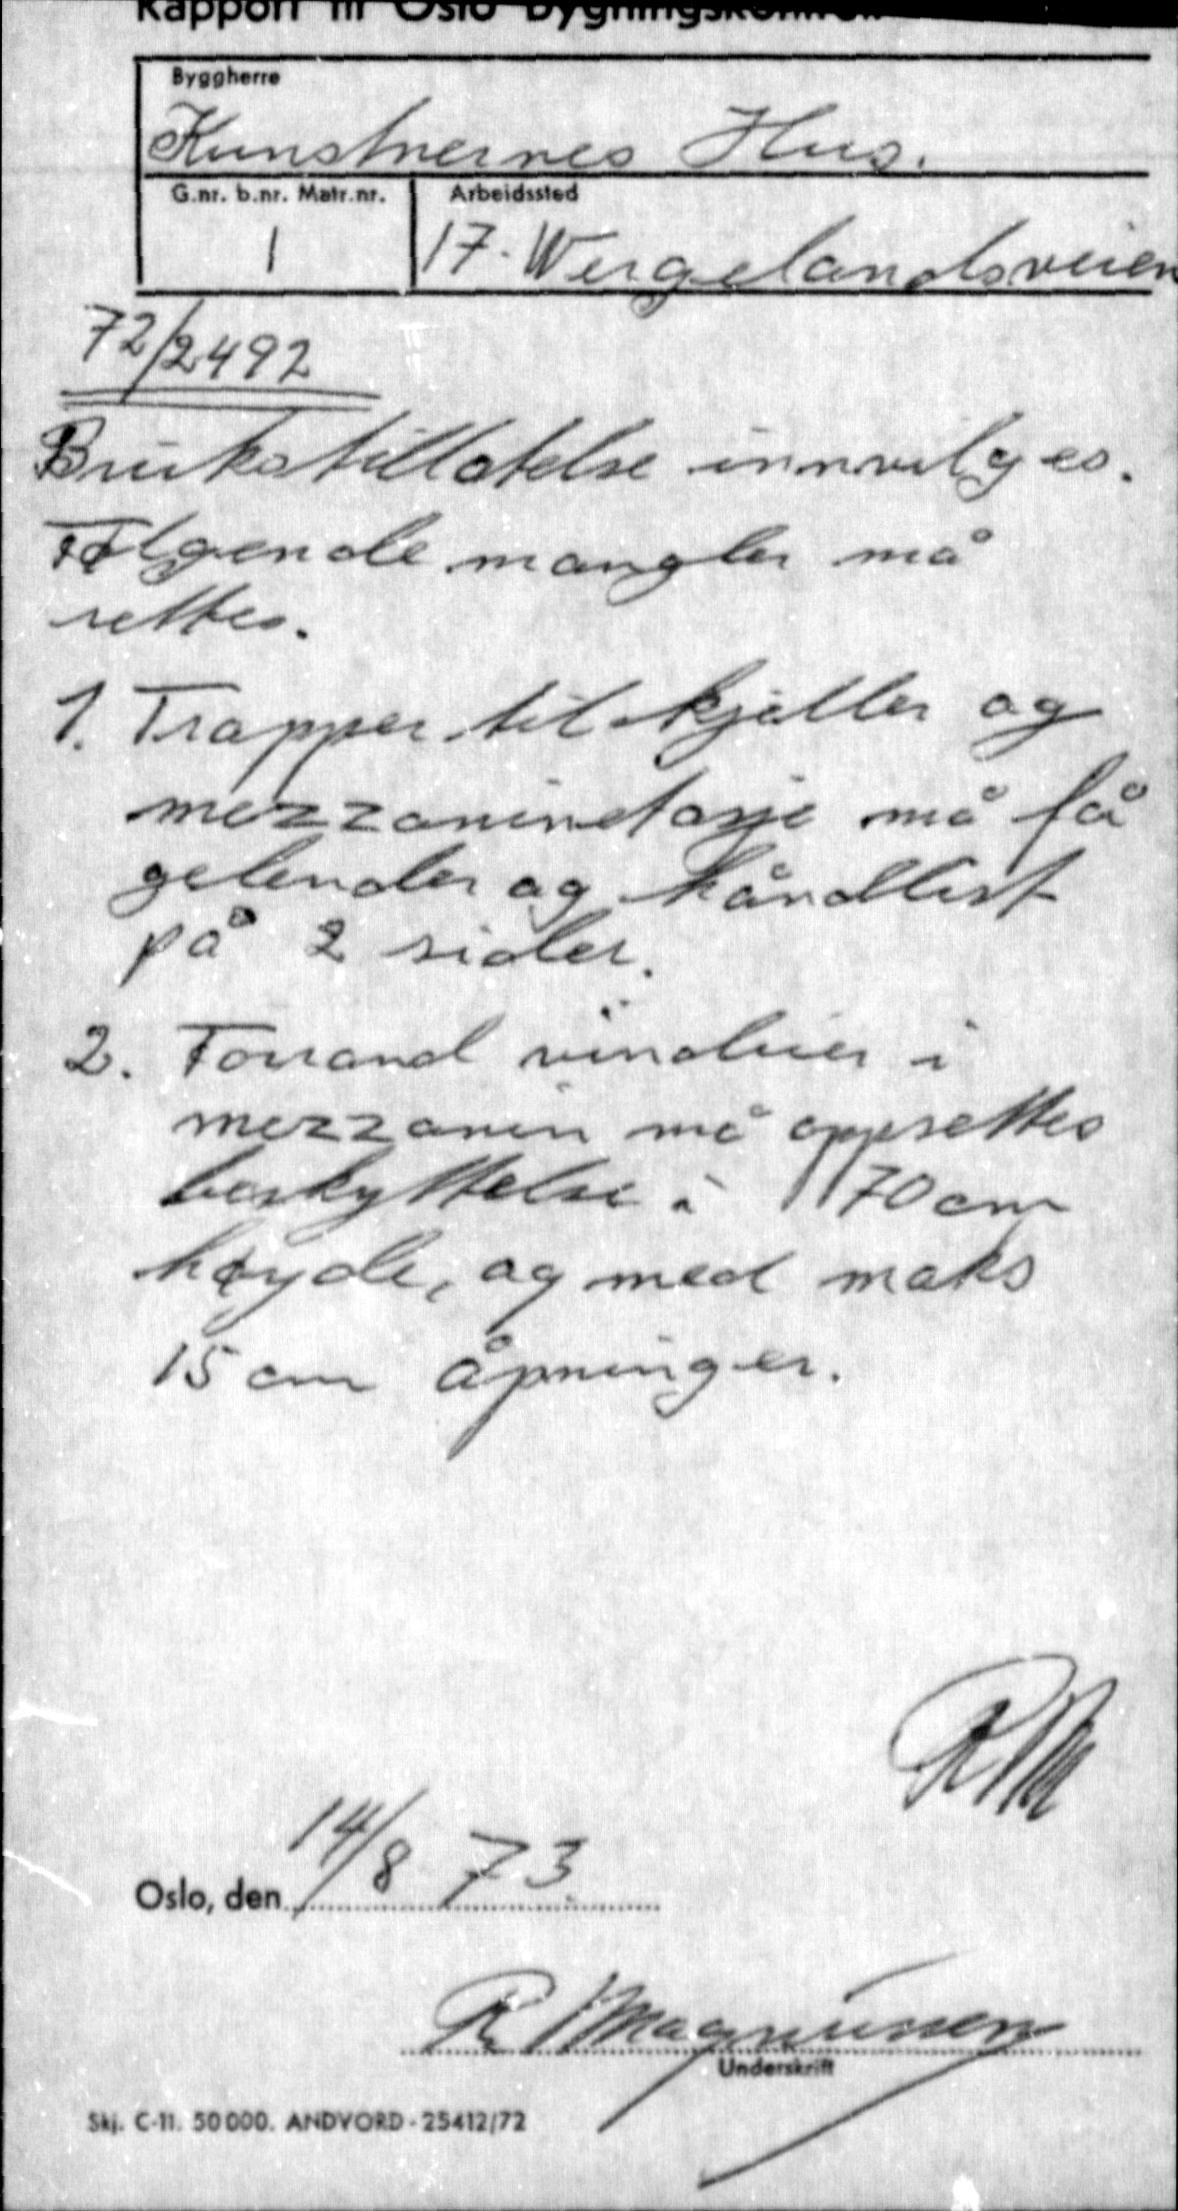 Rapport til Oslo bygningskontroll
Byggherre
Kunstnernes Hus.
G.nr. b.nr. Matr.nr.
Arbeidssted
1
17. Wergelandsveien
72/2492
Brukstillatelse innvilges.
Følgende mangler må
rettes.
1. Trapper til kjeller og
mezzaninetasje må få
gelender og håndlist
på 2 sider.
2. Forrand vinduer i
mezzanin må oppsettes
beskyttelse i 70 cm
høyde, og med maks
15 cm åpninger.
RM
Oslo, den 14/8 73.
R Magnussen
Underskrift
Skj. C-11. 50000. ANDVORD - 25412/72